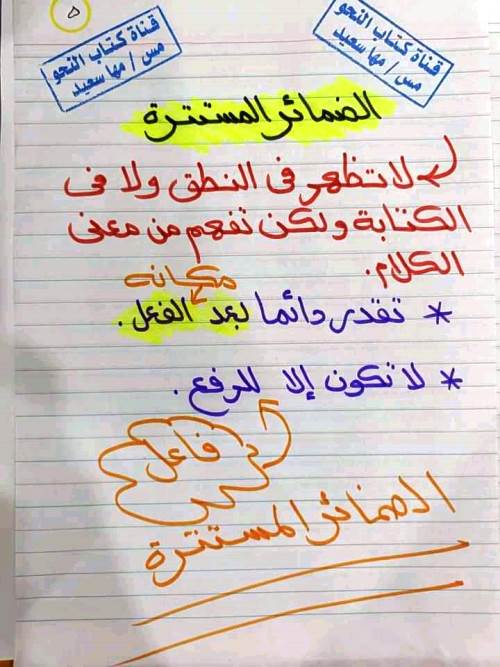 ٥
قناة كتاب النحو
مس / مها سعيد
قناة كتاب النحو
مس / مها سعيد
الضمائر المستترة
لا تظهر في النطق ولا في
الكتابة ولكن تفهم من معنى
الكلام.
مكانه
* تقدر دائما بعد الفعل.
* لا تكون إلا للرفع.
فاعل
الضمائر المستترة